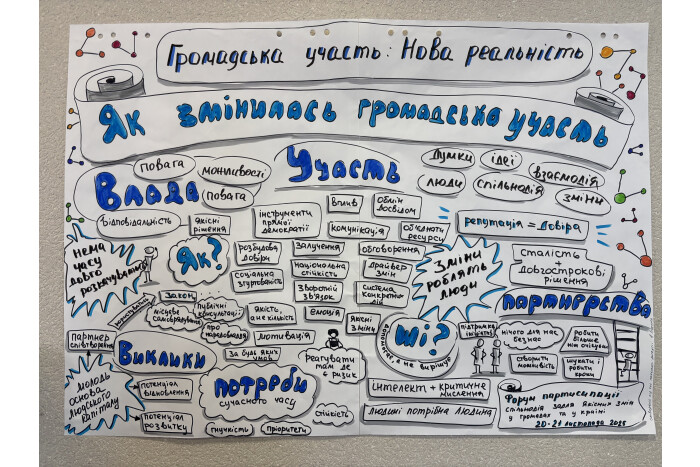 Громадська участь: Нова реальність
Як змінилась громадська участь
Влада
повага
можливості
повага
Участь
думки
ідеї
взаємодія
люди
спільнодія
зміни
відповідальність
якісні
рішення
інструменти
прямої
демократії
вплив
обмін
досвідом
комунікація
об'єднати
ресурси
репутація = довіра
нема
часу
довго
розкачуватись
Як?
розбудова
довіри
залучення
обговорення
соціальна
згуртованість
національна
стійкість
драйвер
змін
зворотній
зв'язок
система
конкретних
Зміни
роблять
люди
сталість
довгострокові
рішення
Партнерства
закон
місцеве
самоврядування
публічні
консультації
про
народовладдя
якість,
а не кількість
емоція
якісні
зміни
мотивація
за будь яких
умов
партнер
співтворення
Виклики
реагувати
там де
є ризик
Ші?
допомагає, а не вирішує
підтримка
ініціатив
нічого для нас
без нас
робити
більше
ніж очікували
створити
можливість
шукати і
робити
кроки
молодь
основа
людського
капіталу
потенціал
відновлення
потенціал
розвитку
Потреби
сучасного часу
гнучкість
пріоритети
стійкість
інтелект + критичне
мислення
людині потрібна людина
Форум партисипації
спільнодія задля якісних змін
у громадах та у країні
20-21 листопада 2025